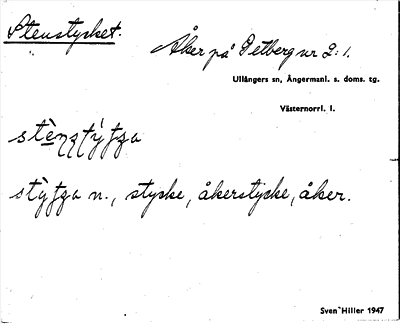 Stenstycket.
Åker på Setberg nr 2:1.
Ullångers sn, Ångermanl. s. doms. tg.
Västernorrl. l.
n., stycke, åkerstycke, åker.
Sven Hiller 1947